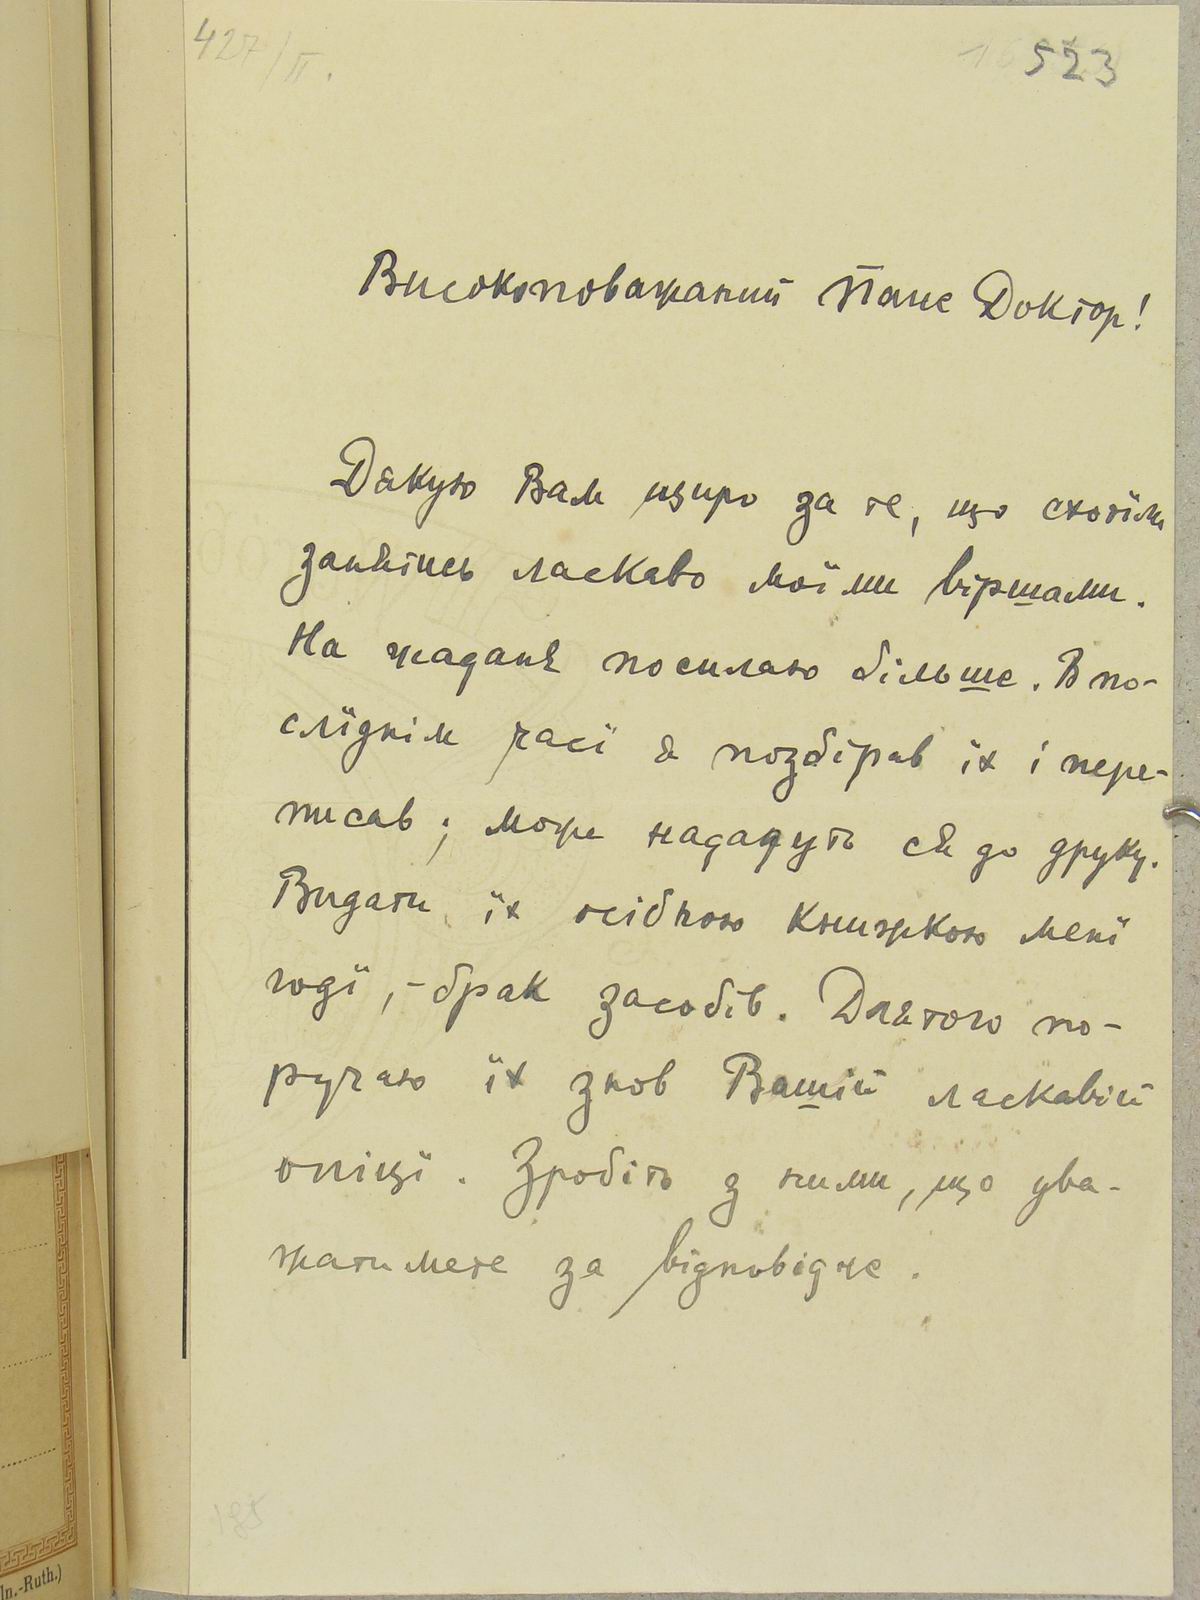 427/II.
523
Високоповажаний Пане Доктор!
Дякую Вам щиро за те, що схотїли
занятись ласкаво моїми віршами.
На жаданя посилаю більше. В по-
слїднім часї я позбірав їх і пере-
писав; може нададуть ся до друку.
Видати їх осібною книжкою менї
годї, - брак засобів. Длятого по-
ручаю їх знов Вашій ласкавій
опіцї. Зробіть з ними, що ува-
жатимете за відповідне.
185
ln.-Ruth.)